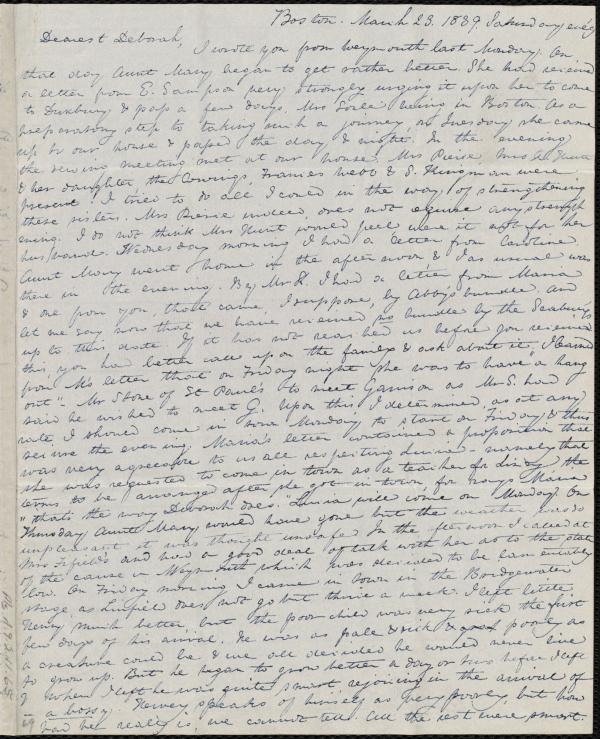 Boston. March 23. 1839. Saturday eve'g
Dearest Deborah,
I wrote you from Weymouth last Monday. On
that day Aunt Mary began to get rather better. She had received
a letter from E. Sampson very strongly urging it upon her to come
to Duxbury & pass a few days. Mrs Soule being in Boston. As a
preparatory step to taking such a journey, on Tuesday she came
up to our house & passed the day & night. In the evening
the sewing meeting met at our house. Mrs Peirse, Mrs Hunt
& her daughter, the Cowings, Frances Webb & S. Kingman were
present. I tried to do all I could in the way of strengthening
these sisters. Mrs Pierse indeed, does not require any strength
ening. I do not think Mrs Hunt would feel were it not for her
husband. Wednesday morning I had a letter from Caroline.
Aunt Mary went home in the afternoon & I as usual was
there in the evening. By Mr H. I had a letter from Maria
& one from you, that came, I suppose, by Abby's bundle. And
let me say now that we have received no bundle by the Seaburys
up to this date. If it has not reached us before you received
this, you had better call upon the family & ask about it. I learned
from M's letter that on Friday night she was to have "a hang
out" - Mr Stone of St Paul's to meet Garrison as Mr S. had
said he wished to meet G. Upon this I determined, as at any
rate, I should come in soon Monday to start on Friday & thus
secure the evening. Maria's letter contained a proposition that
was very agreeable to us all respecting Lucia - namely that
she was requested to come in town as a teacher for Lizzy, the
terms to be arranged after she got in town, for says Maria
"that's the way Deborah does." Lucia will come on Monday. On
Thursday Aunt Mary would have gone but the weather was so
unpleasant it was thought unsafe. In the afternoon I called at
Mrs Fifield's and had a good deal of talk with her as to the state
of the cause in Weymouth which was decided to be lamentably
low. On Friday morning I came in town in the Bridgewater
stage as Linfield does not go but thrice a week. I left little
Henry much better but the poor child was very sick the first
few days of his arrival. He was as pale & sick & poorly as
a creature could be & we all decided he would never live
to grow up. But he began to grow better a day or two before I left
& when I left he was quite smart rejoicing in the arrival of
a bossy. Hervey speaks of himself as very poorly, but how
bad he really is, we cannot tell. All the rest were smart.